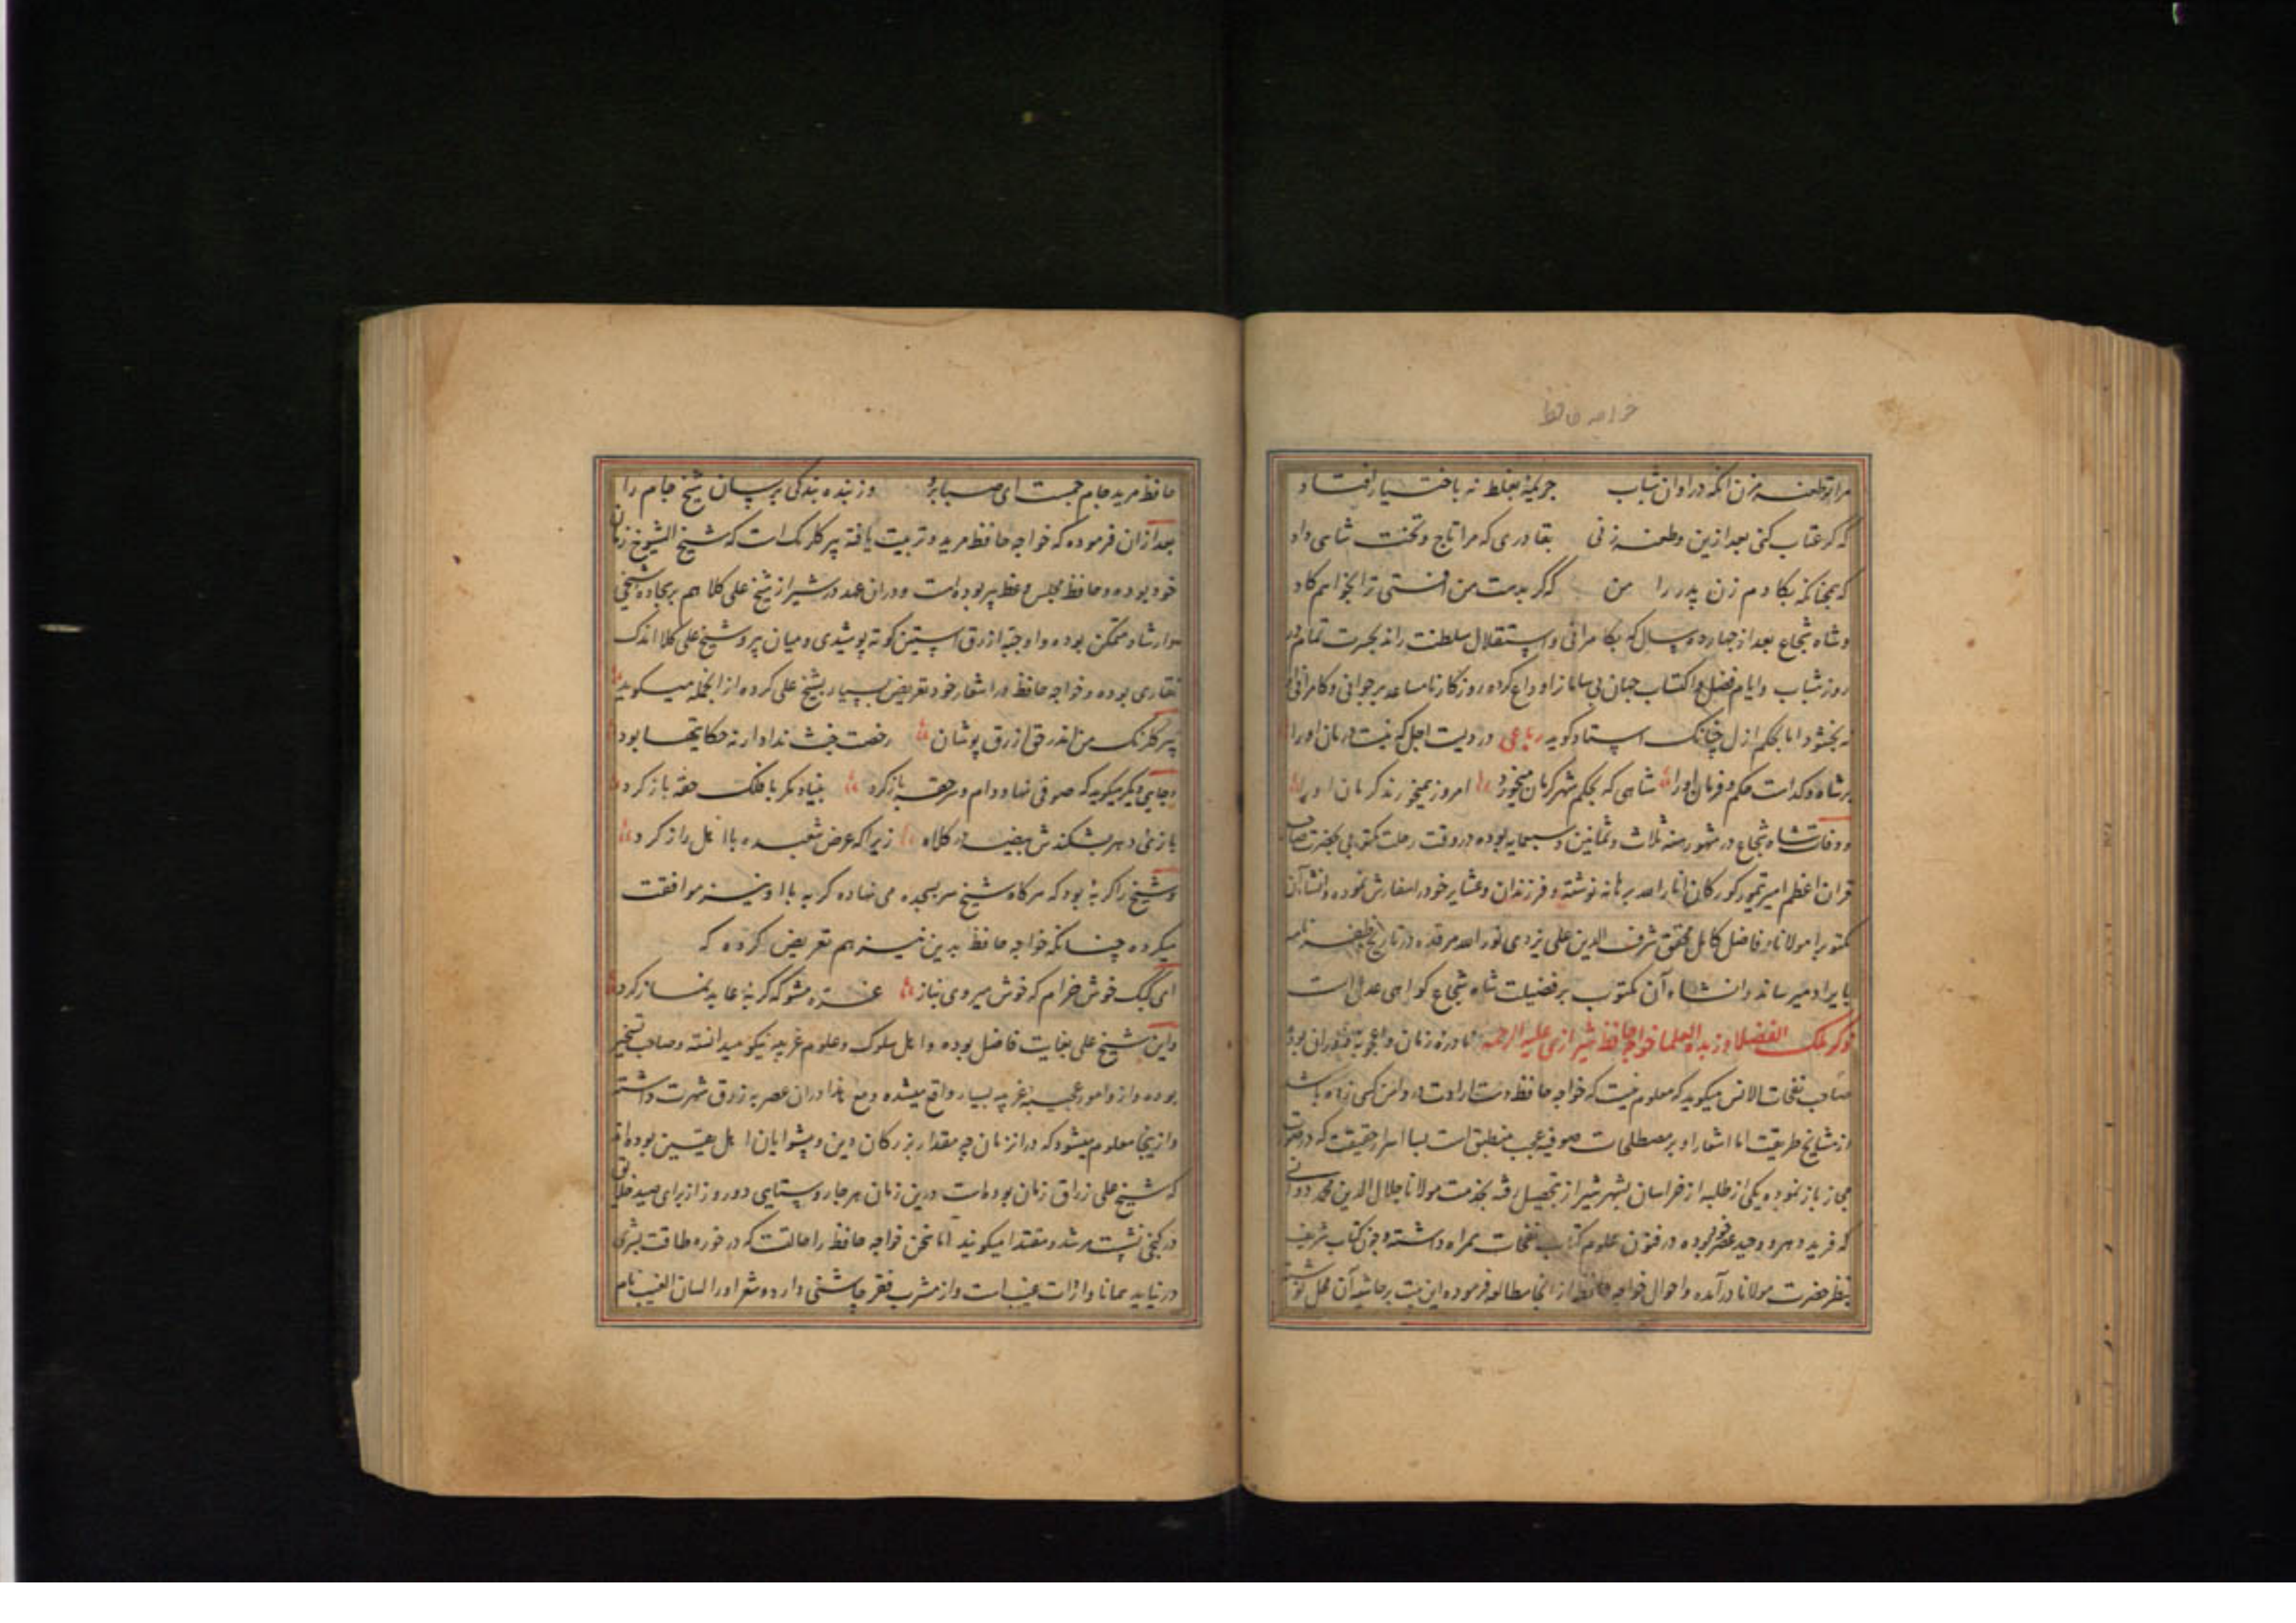 خواجه حافظ
مرا تو طعنه مزن آنکه در اوان شباب جریمهٔ بغلط نه باختیار افتاد
که گر عتاب کنی بعد ازین و طعنه زنی بقادری که مرا تاج و تخت شاهی داد
که همچنانکه بگادم زن پدر را من که گر بدست من افتی ترا بخواهم گاد
و شاه شجاع بعد از چهارده سال که بکامرانی و استقلال سلطنت راند بحسرت تمام در
روز شباب و ایام فضل و اکتساب جهان بی سامانرا وداع کرده روزگار نامساعد بر جوانی و کامرانی او
نه بخشود اما بحکم ازل چنانک استاد گوید رباعی دردیست اجل که نیست درمان او را
بر شاه و گداست حکم و فرمان او را شاهی که بحکم شهر کرمان میخورد امروز همیخورند کرمان او را
و وفات شاه شجاع در شهور سنه ثلاث و ثمانین و سبعمایه بوده در وقت رحلت مکتوبی بحضرت صاحب
قران اعظم امیر تیمور کورکان انار الله برهانه نوشته و فرزندان و عشایر خود را سفارش نموده و انشاء آن
مکتوب را مولانا و فاضل کامل محقق شرف الدین علی یزدی نور الله مرقده در تاریخ ظفرنامه
بایراد میرساند و انشاء آن مکتوب بر فضیلت شاه شجاع گواهی عدل است
ذکر ملک الفضلا و زبده العلما خواجه حافظ شیرازی علیه الرحمه نادرهٔ زمان و اعجوبه دوران بوده
صاحب نفحات الانس میگوید که معلوم نیست که خواجه حافظ دست ارادت در دامن کسی زده باشد
از مشایخ طریقت اما اشعار او بر مصطلحات صوفیه عجب منطبق است بسا اسرار حقیقت که در صورت
مجاز باز نموده یکی از طلبه از خراسان بشهر شیراز بتحصیل رفته بخدمت مولانا جلال الدین محمد دوانی
که فرید دهر و وحید عصر خود بوده در فنون علوم کتاب نفحات همراه داشته و چون کتاب شریف
بنظر حضرت مولانا درآمده و احوال خواجه حافظ از آنجا مطالعه فرموده این بیت بر حاشیه آن محل نوشته
حافظ مرید جام جمست ای صبا برو وز بنده بندگی برسان شیخ جام را
بعد از ان فرموده که خواجه حافظ مرید و تربیت یافته پیر گلرنک است که شیخ الشیوخ زمان
خود بوده و حافظ مجلس وعظ پیر بوده است و در ان عهد در شیراز شیخ علی کلا هم بر سجاده شیخی
و ارشاد متمکن بوده و او جبه ازرق استین کوته پوشیدی و میان پیر و شیخ علی کلا اندک
نقاری بوده و خواجه حافظ در اشعار خود تعریض بسیار بشیخ علی کرده از انجمله میگوید
پیر گلرنک من اندر حق ازرق پوشان رخصت خبث نداد ار نه حکایتها بود
و جایی دیگر میگوید که صوفی نهاد دام و سر حقه باز کرد بنیاد مکر با فلک حقه باز کرد
بازی دهر بشکندش بیضه در کلاه زیرا که عرض شعبده با اهل راز کرد
و شیخ را گربهٔ بود که هر گاه شیخ سر بسجده می نهاده گربه با او نیز موافقت
میکرده چنانکه خواجه حافظ بدین نیز هم تعریض کرده که
ای کبک خوش خرام که خوش میروی بناز غره مشو که گربهٔ عابد نماز کرد
و این شیخ علی بغایت فاضل بوده و اهل سلوک و علوم غریبه نیکو میدانسته و صاحب تسخیر
بوده و از و امور عجیبه غریبه بسیار واقع میشده و مع هذا در ان عصر به زرق شهرت داشته
و از اینجا معلوم میشود که در انزمان چه مقدار بزرکان دین و پیشوایان اهل یقین بوده اند
که شیخ علی زراق زمان بوده است در ین زمان هر جا روستایی دو روز از برای صید خلایق
در کنجی نشست مرشد و مقتدا میگویند اما سخن خواجه حافظ را حالتست که در خوره طاقت بشری
در نیاید همانا واردات غیب است و از مشرب فقر چاشنی دارد و شعر او را لسان الغیب نام